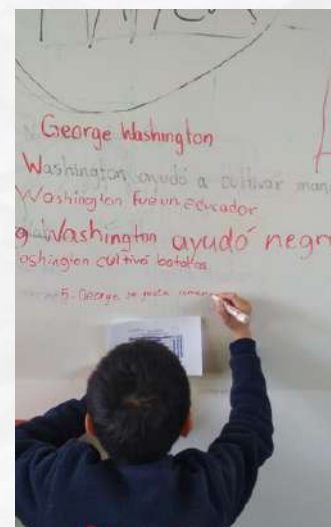 George Washington
Washington ayudó a cultivar man
Washington fue un educador
g Washington ayudó negr
ashington cultivó batatas
5. George se